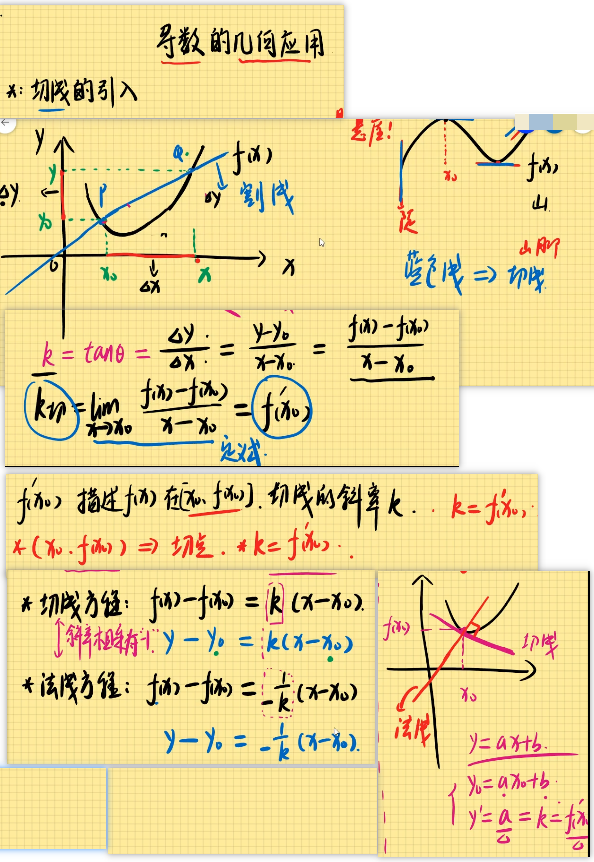 导数的几何应用
*: 切线的引入
y
Q
f(x)
y
Δy
P
Δy
割线
y₀
0
x₀
x
x
Δx
悬崖!
x₀
f(x)
山
陡
山脚
蓝色线 => 切线
k = tanθ = Δy/Δx = (y-y₀)/(x-x₀) = (f(x)-f(x₀))/(x-x₀)
k切 = lim x→x₀ (f(x)-f(x₀))/(x-x₀) = f'(x₀)
定义式
f'(x₀) 描述f(x)在[x₀, f(x₀)]. 切线的斜率k. k = f'(x₀)
*(x₀, f(x₀)) => 切点. *k = f'(x₀).
*切线方程: f(x)-f(x₀) = k(x-x₀).
y-y₀ = k(x-x₀)
*法线方程: f(x)-f(x₀) = -1/k (x-x₀)
y-y₀ = -1/k (x-x₀).
f(x₀)
切线
x₀
法线
y = ax+b.
y₀ = ax₀+b
y' = a = k = f'(x₀